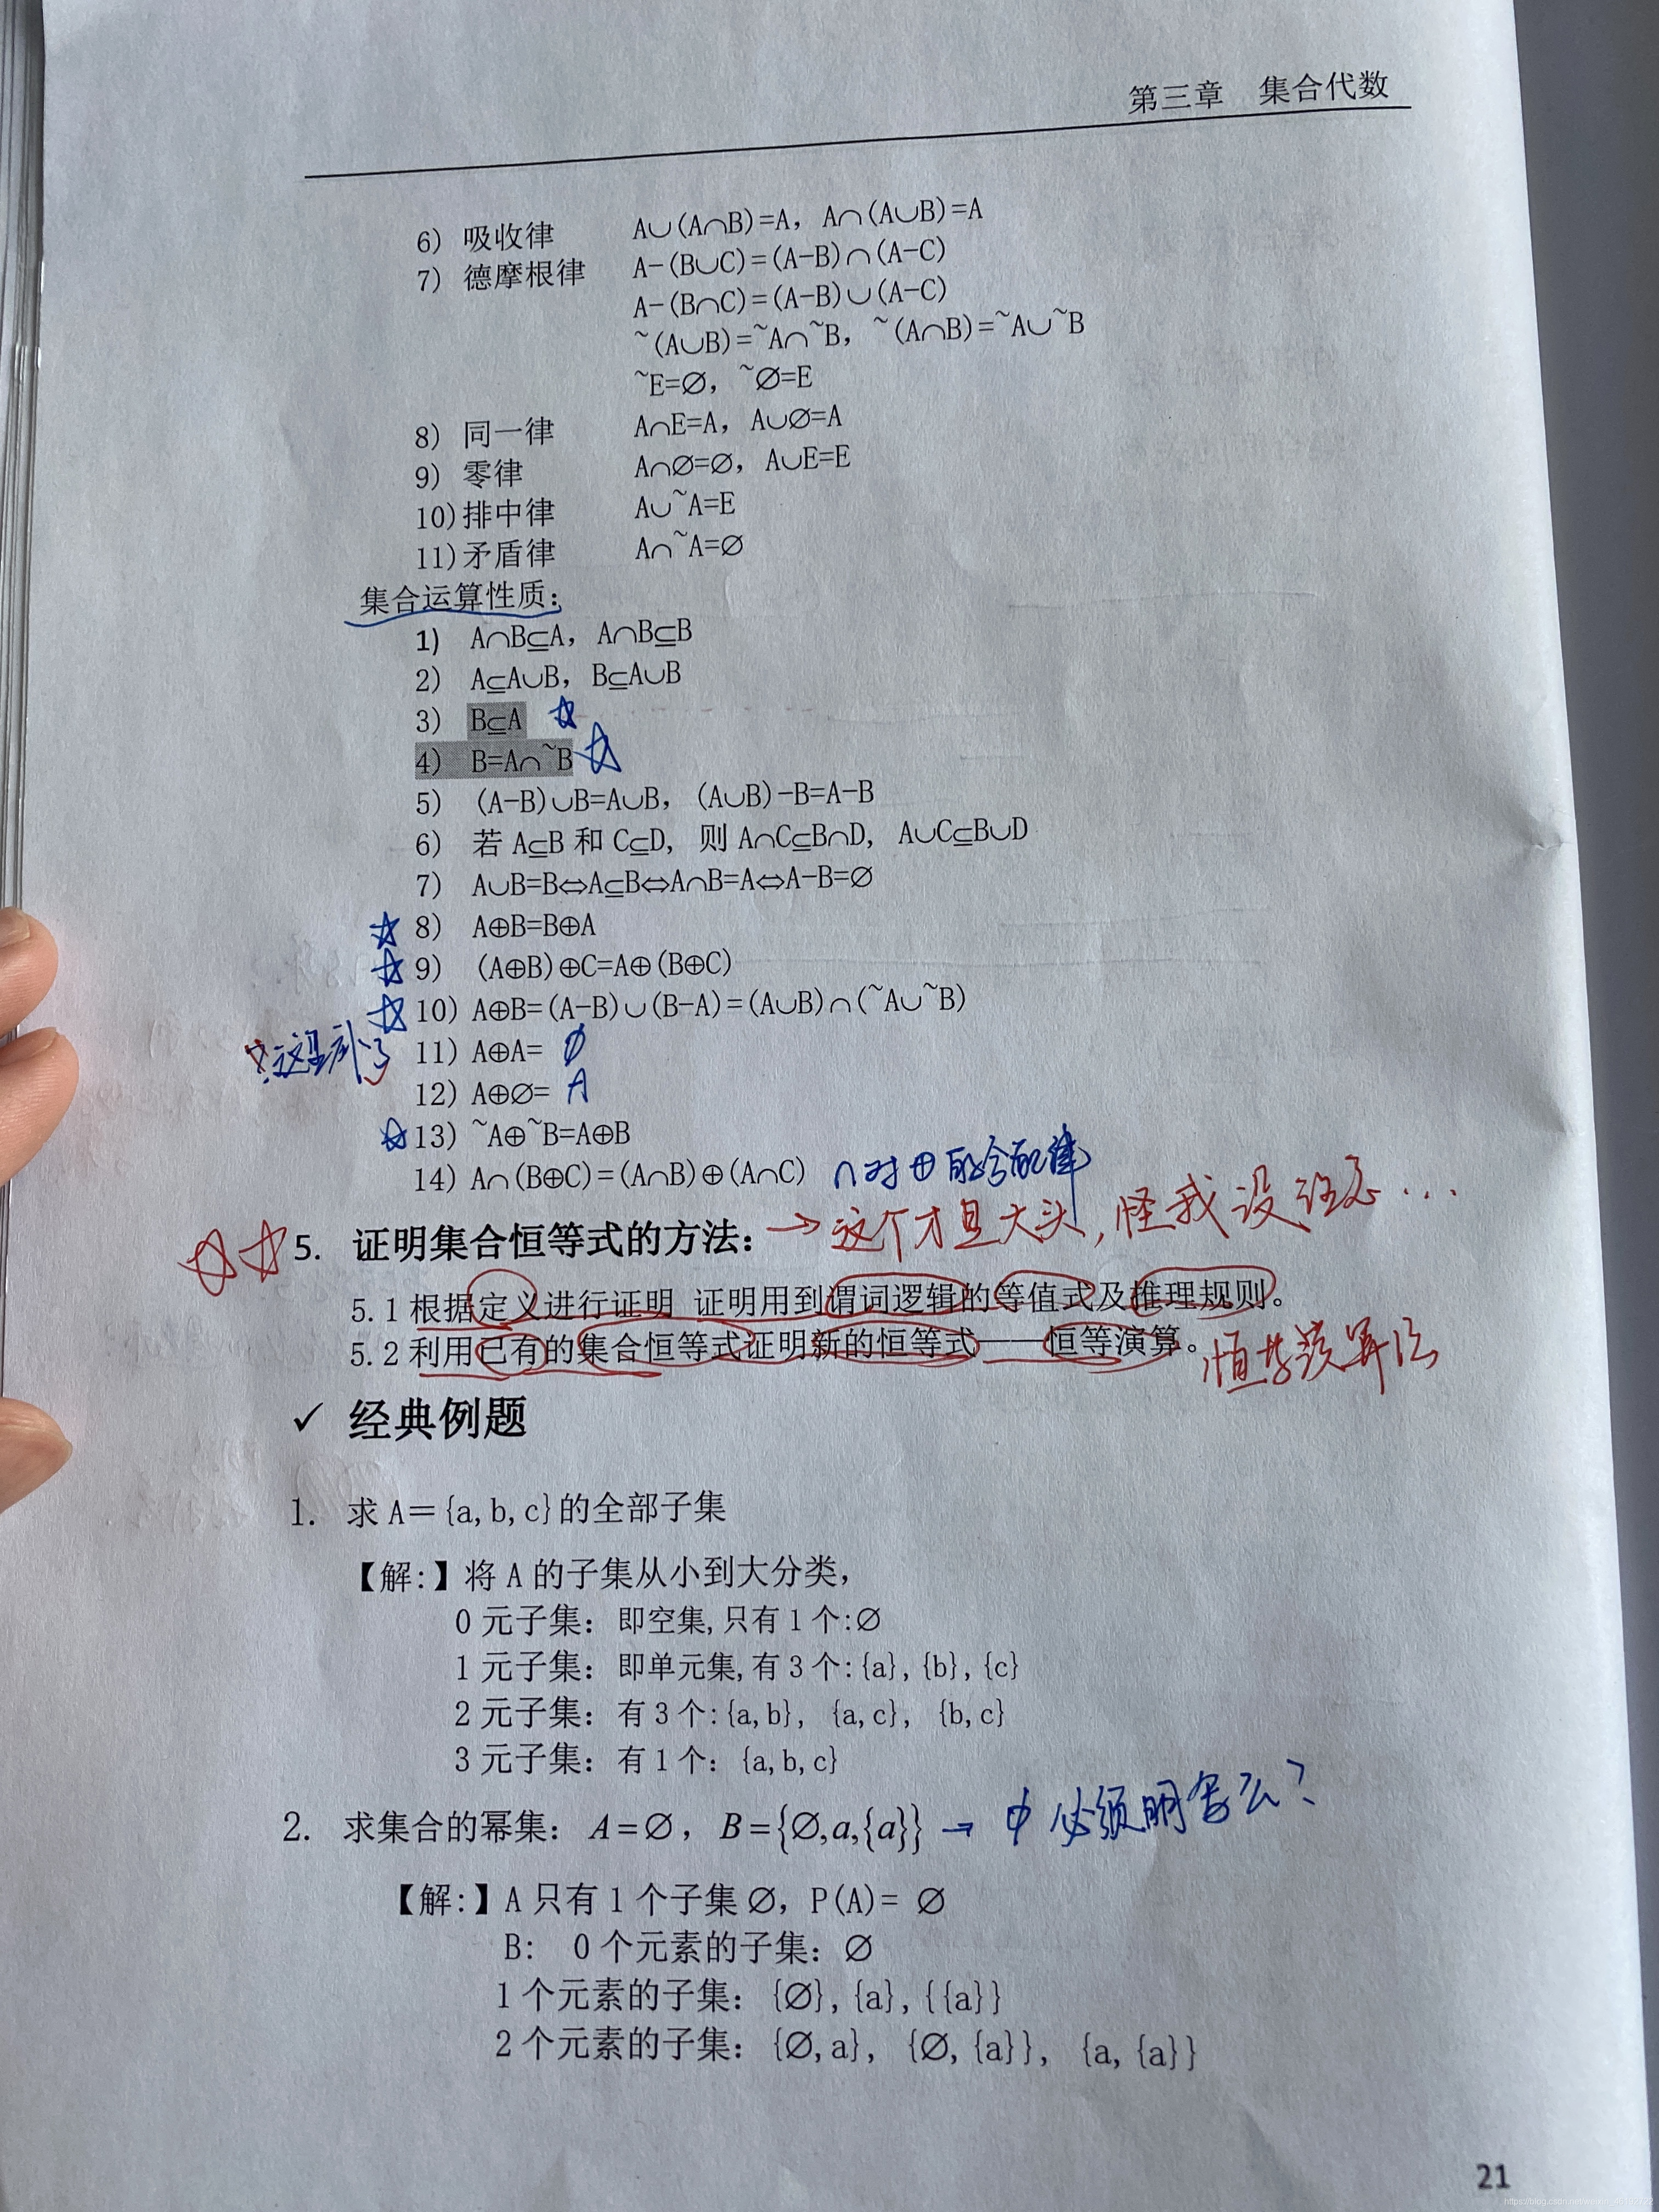 第三章 集合代数
6) 吸收律 A∪(A∩B)=A, A∩(A∪B)=A
7) 德摩根律 A-(B∪C)=(A-B)∩(A-C)
A-(B∩C)=(A-B)∪(A-C)
~(A∪B)=~A∩~B, ~(A∩B)=~A∪~B
~E=∅, ~∅=E
8) 同一律 A∩E=A, A∪∅=A
9) 零律 A∩∅=∅, A∪E=E
10) 排中律 A∪~A=E
11) 矛盾律 A∩~A=∅
集合运算性质:
1) A∩B⊆A, A∩B⊆B
2) A⊆A∪B, B⊆A∪B
3) B⊆A ☆
4) B=A∩~B ☆
5) (A-B)∪B=A∪B, (A∪B)-B=A-B
6) 若 A⊆B 和 C⊆D, 则 A∩C⊆B∩D, A∪C⊆B∪D
7) A∪B=B⇔A⊆B⇔A∩B=A⇔A-B=∅
☆ 8) A⊕B=B⊕A
☆ 9) (A⊕B)⊕C=A⊕(B⊕C)
☆ 10) A⊕B=(A-B)∪(B-A)=(A∪B)∩(~A∪~B)
11) A⊕A= ∅
12) A⊕∅= A
☆ 13) ~A⊕~B=A⊕B
14) A∩(B⊕C)=(A∩B)⊕(A∩C) ∩对⊕
☆☆ 5. 证明集合恒等式的方法: →这个才是大头,怪我没...
5.1 根据定义进行证明 证明用到谓词逻辑的等值式及推理规则。
5.2 利用已有的集合恒等式证明新的恒等式——恒等演算。
✓ 经典例题
1. 求 A={a,b,c}的全部子集
【解:】将 A 的子集从小到大分类,
0 元子集: 即空集,只有 1 个:∅
1 元子集: 即单元集,有 3 个:{a},{b},{c}
2 元子集: 有 3 个:{a,b}, {a,c}, {b,c}
3 元子集: 有 1 个: {a,b,c}
2. 求集合的幂集: A=∅, B={∅,a,{a}} → ϕ 必须明写么?
【解:】A 只有 1 个子集 ∅, P(A)= ∅
B: 0 个元素的子集: ∅
1 个元素的子集: {∅},{a},{{a}}
2 个元素的子集: {∅,a}, {∅,{a}}, {a,{a}}
21